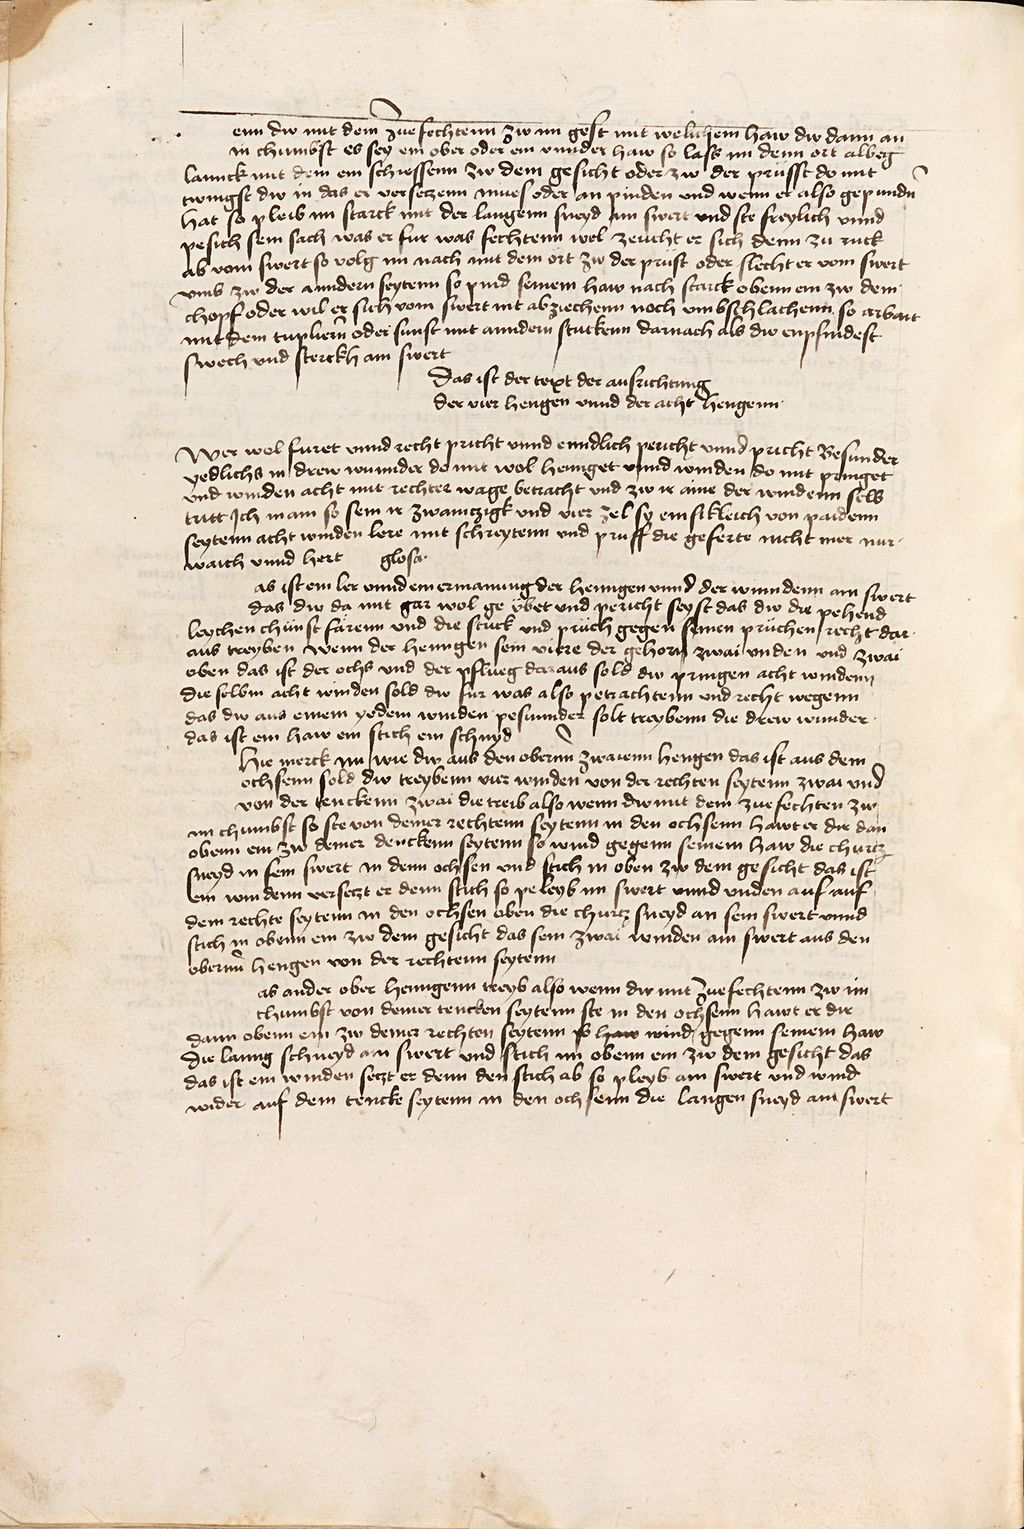 enn dw mit dem zuefechtenn zw im gest mit welichem haw dw dann an
in chumbst es sey ein ober oder ein unnder haw so lass im denn ort albeg
lannck mit dem ein schiessenn zw dem gesicht oder zw der prüsst do mit
twingst dw in das er versetzenn mues oder an pinden und wenn er also gepundn
hat so pleib im starck mit der langenn sneyd am swert und ste freylich unnd
pesich sein sach was er fur was fechtenn wel zeucht er sich denn zu ruck
ab vom swert so volg im nach mit dem ort zw der prust oder slecht er vom swert
umb zw der anndern seytenn so pind seinem haw nach starck obenn ein zw dem
chopf oder wil er sich vom swert nit abziechenn noch umbschlachenn so arbait
mit dem tupliern oder sunst mit anndern stuckenn darnach als dw enpfindest
swech und sterckh am swert
Das ist der text der aufrichtung
der vier hengen unnd der acht hengenn
Wer wol furet unnd recht pricht unnd enndlich pericht unnd pricht Besunder
yedlichs in drew wunnder do mit wol hennget unnd winden do mit pringet
und winden acht mit rechter wage betracht und zw ir aine der windenn selb
tritt Ich main so sein ir zwainczigk und vier zel sy ein sikleich von paidenn
seytenn acht winden lere mit schreytenn und pruff die geferte nicht mer nur
waich unnd hert glosa
as ist ein ler unnd ein ermanung der henngen unnd der winndenn am swert
das dw da mit gar wol ge ybet und pericht seyst das dw die pehend
leychen chunst farenn und die stuck und pruch gegen seinen pruchen recht dar
aus treyben Wenn der henngen sein viere der gehorn zwai unden und zwai
oben das ist der ochs und der pflueg daraus sold dw pringen acht windenn
die selbin acht winden sold dw fur was also petrachtenn und recht wegenn
das dw aus einem yedem winden pesunnder solt treybenn die drew wunder
das ist ein haw ein stich ein schnyd
Hie merck nu wie dw aus den obernn zwaienn hengen das ist aus dem
ochsenn sold dw treybenn vier winden von der rechten seytenn zwai und
von der tenckenn zwai die treib also wenn dw mit dem zuefechten zw
im chumbst so ste von deiner rechtenn seytenn in den ochsenn hawt er dir dan
obenn ein zw deiner denckenn seytenn so wind gegenn seinem haw die churcz
sneyd in sein swert in denn ochsen und stich in oben zw dem gesicht das ist
ein windenn versetzt er denn stich so peleyb im swert unnd unden auf auf
dem rechte seytenn in den ochsen oben die churcz sneyd an sein swert unnd
stich in obenn ein zw dem gesicht das sein zwai winden am swert aus den
obernn hengen von der rechtenn seytenn
as ander ober henngenn treyb also wenn dw mit zuefechtenn zw im
chumbst von deiner tencken seytenn ste in den ochsenn hawt er dir
dann obenn ein zw deiner rechten seytenn so haw wind gegenn seinem haw
die lanng schneyd an swert und stich im obenn ein zw dem gesicht das
das ist ein winden setzt er denn den stich ab so pleyb am swert und wind
wider auf dem tencke seytenn in den ochsenn die langen sneyd am swert